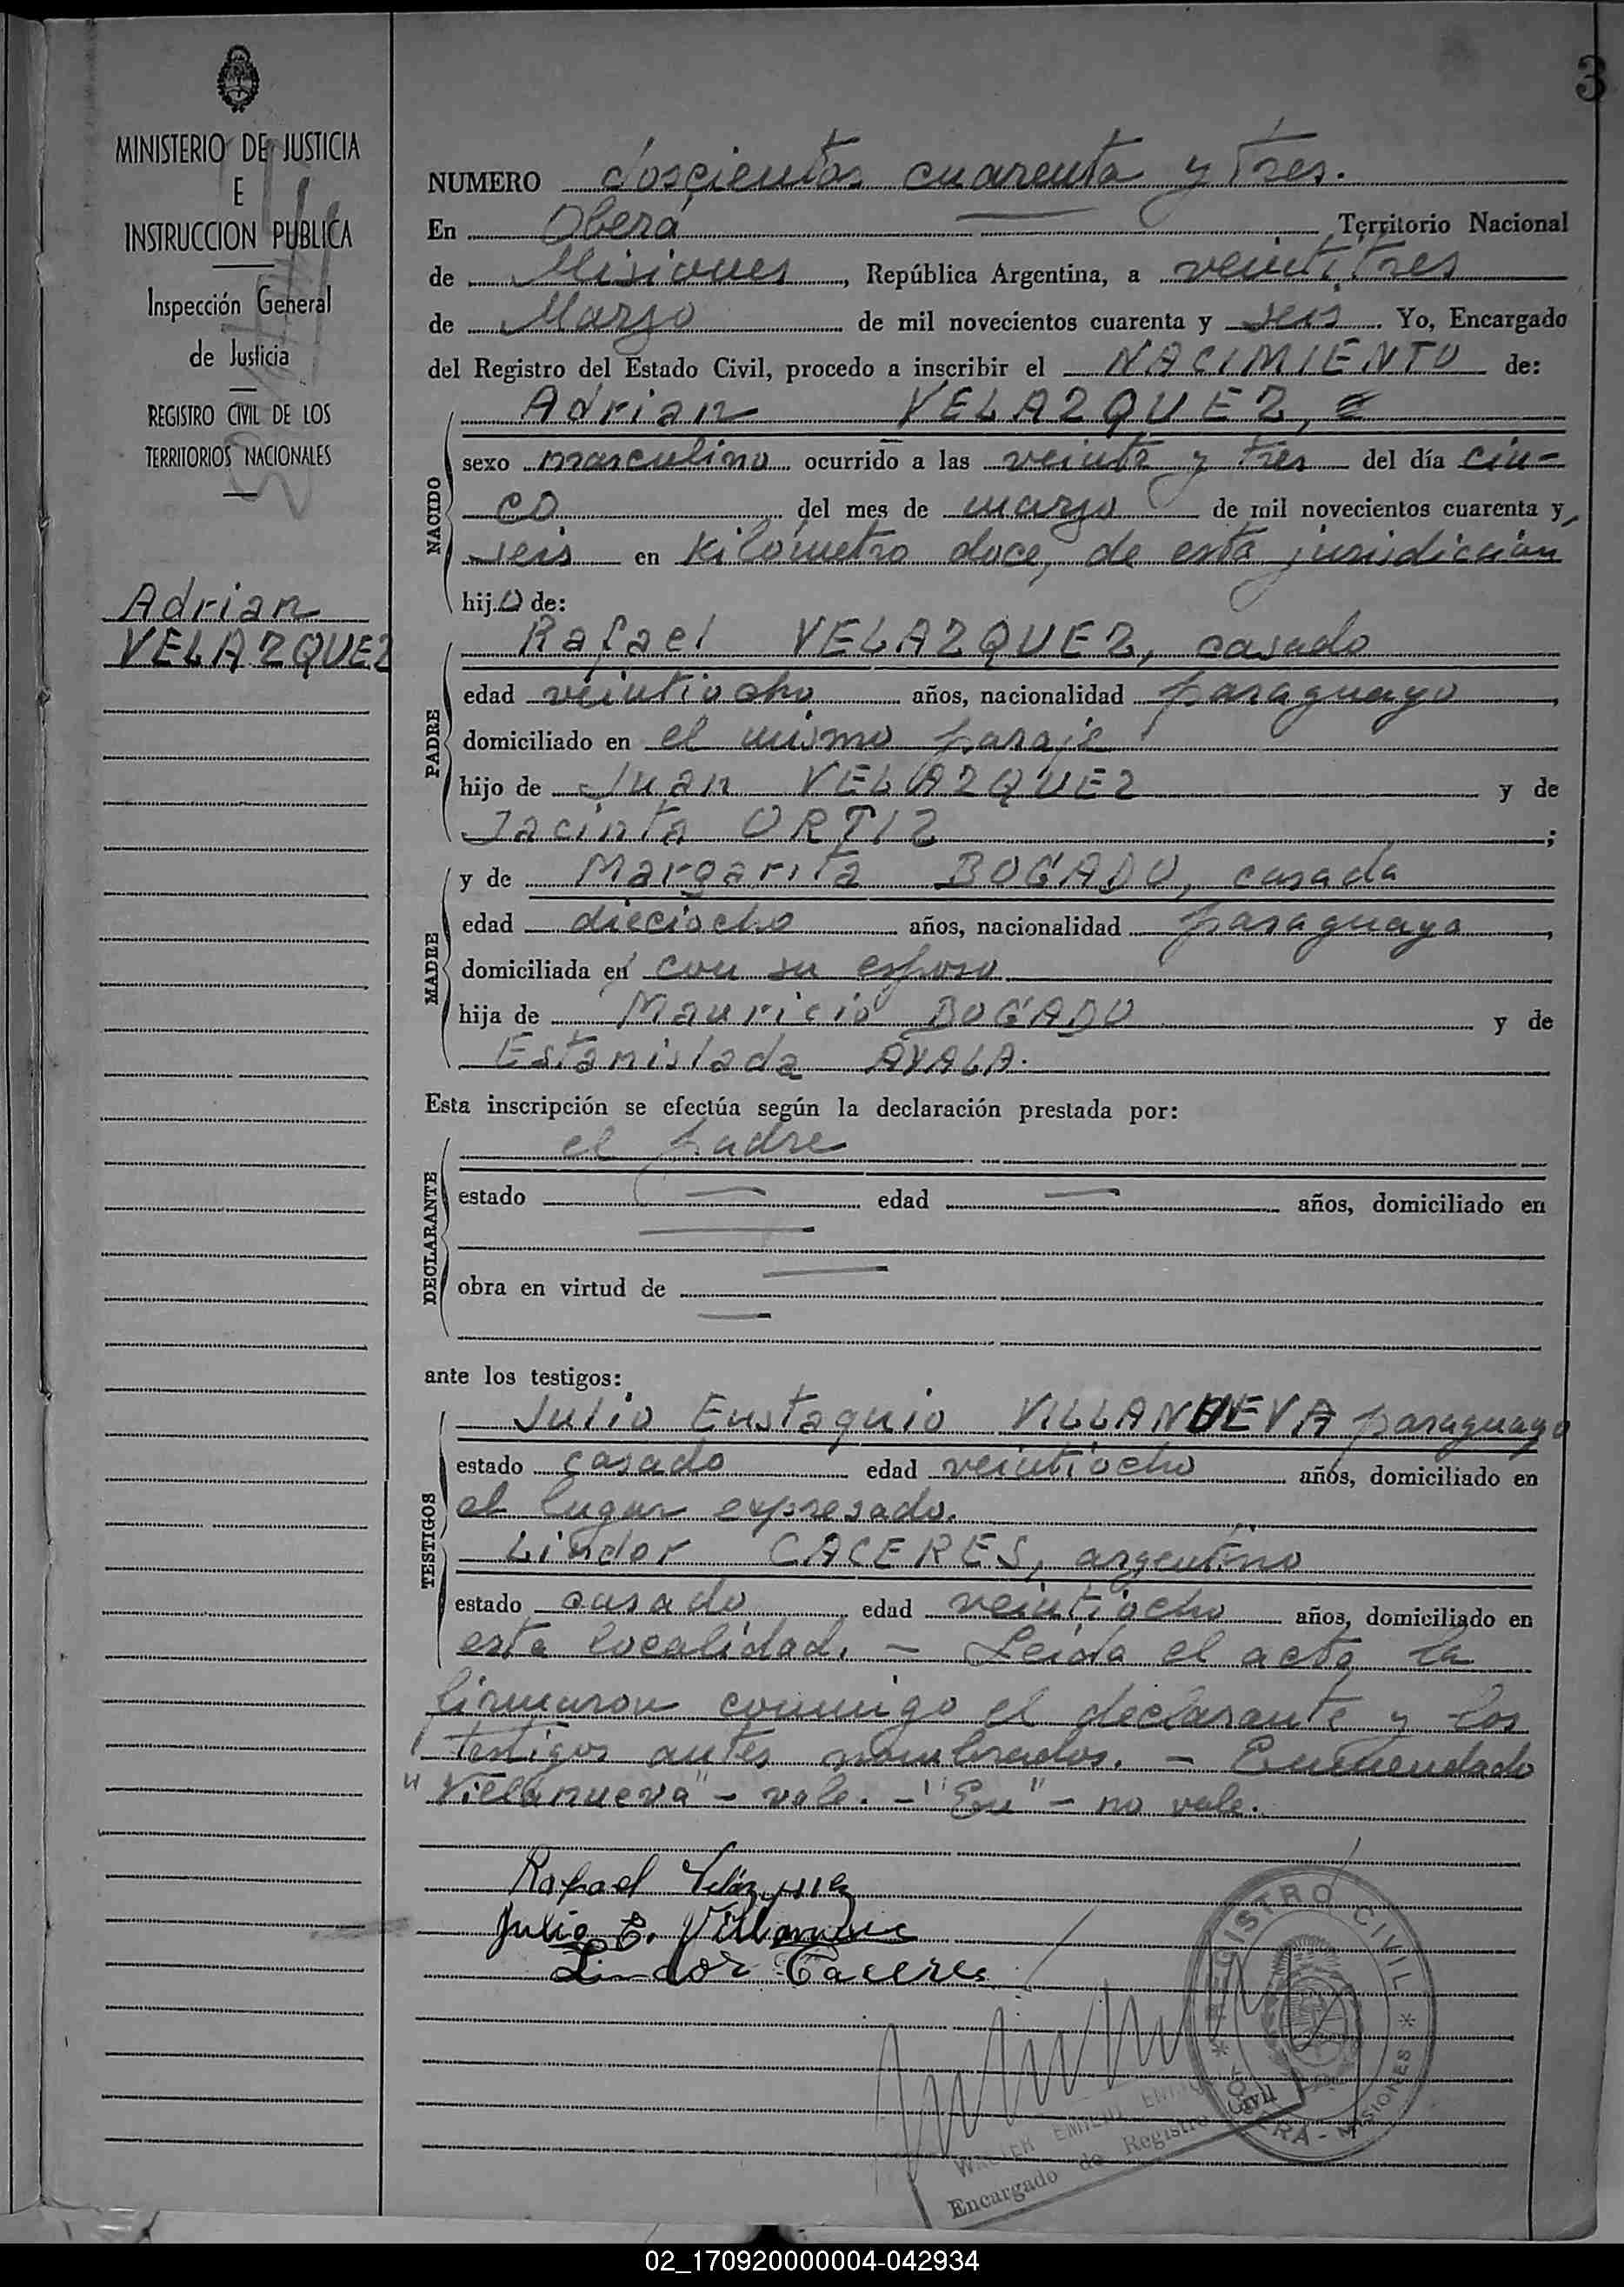 3
MINISTERIO DE JUSTICIA
E
INSTRUCCION PUBLICA
Inspección General
de Justicia
REGISTRO CIVIL DE LOS
TERRITORIOS NACIONALES
Adrian
VELAZQUEZ
NUMERO doscientos cuarenta y tres.
En Oberá Territorio Nacional
de Misiones, República Argentina, a veintitres
de Marzo de mil novecientos cuarenta y seis. Yo, Encargado
del Registro del Estado Civil, procedo a inscribir el NACIMIENTO de:
NACIDO
Adrian VELAZQUEZ,
sexo masculino ocurrido a las veinte y tres del día cin-
co del mes de marzo de mil novecientos cuarenta y
seis en Kilómetro doce, de esta jurisdiccion
hijo de:
PADRE
Rafael VELAZQUEZ, casado
edad veintiocho años, nacionalidad paraguayo,
domiciliado en el mismo paraje
hijo de Juan VELAZQUEZ y de
Jacinta ORTIZ;
MADRE
y de Margarita BOGADO, casada
edad dieciocho años, nacionalidad paraguaya,
domiciliada en con su esposo
hija de Mauricio BOGADO y de
Estanislada AYALA.
Esta inscripción se efectúa según la declaración prestada por:
DECLARANTE
el padre
estado — edad — años, domiciliado en
—
obra en virtud de —
—
ante los testigos:
TESTIGOS
Julio Eustaquio VILLANUEVA paraguayo
estado casado edad veintiocho años, domiciliado en
el lugar expresado.
Lindor CACERES, argentino
estado casado edad veintiocho años, domiciliado en
esta localidad. — Leida el acta la
firmaron conmigo el declarante y los
testigos antes nombrados. — Enmendado
"Villanueva" - vale. - "En" - no vale.
Rafael Velazquez
Julio E. Villanueva
Lindor Caceres
REGISTRO CIVIL
OBERA - MISIONES
Encargado de Registro Civil
02_170920000004-042934